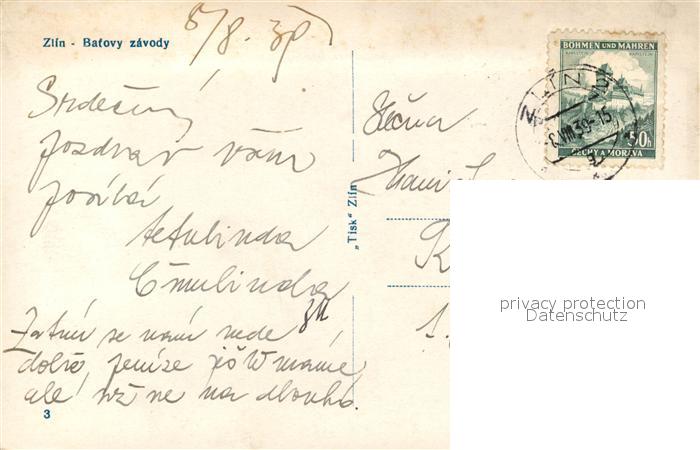 5/8. 39
Zlín - Baťovy závody
Srdečný
pozdrav vám
posílá
tetulinda
Čmulinda
Zatím se nám vede
dobře, peníze máme,
ale už ne na dlouho.
3
„Tisk“ Zlín
Slečna
BÖHMEN UND MÄHREN
50h
ČECHY A MORAVA
ZLÍN
VIII 39-15
privacy protection
Datenschutz